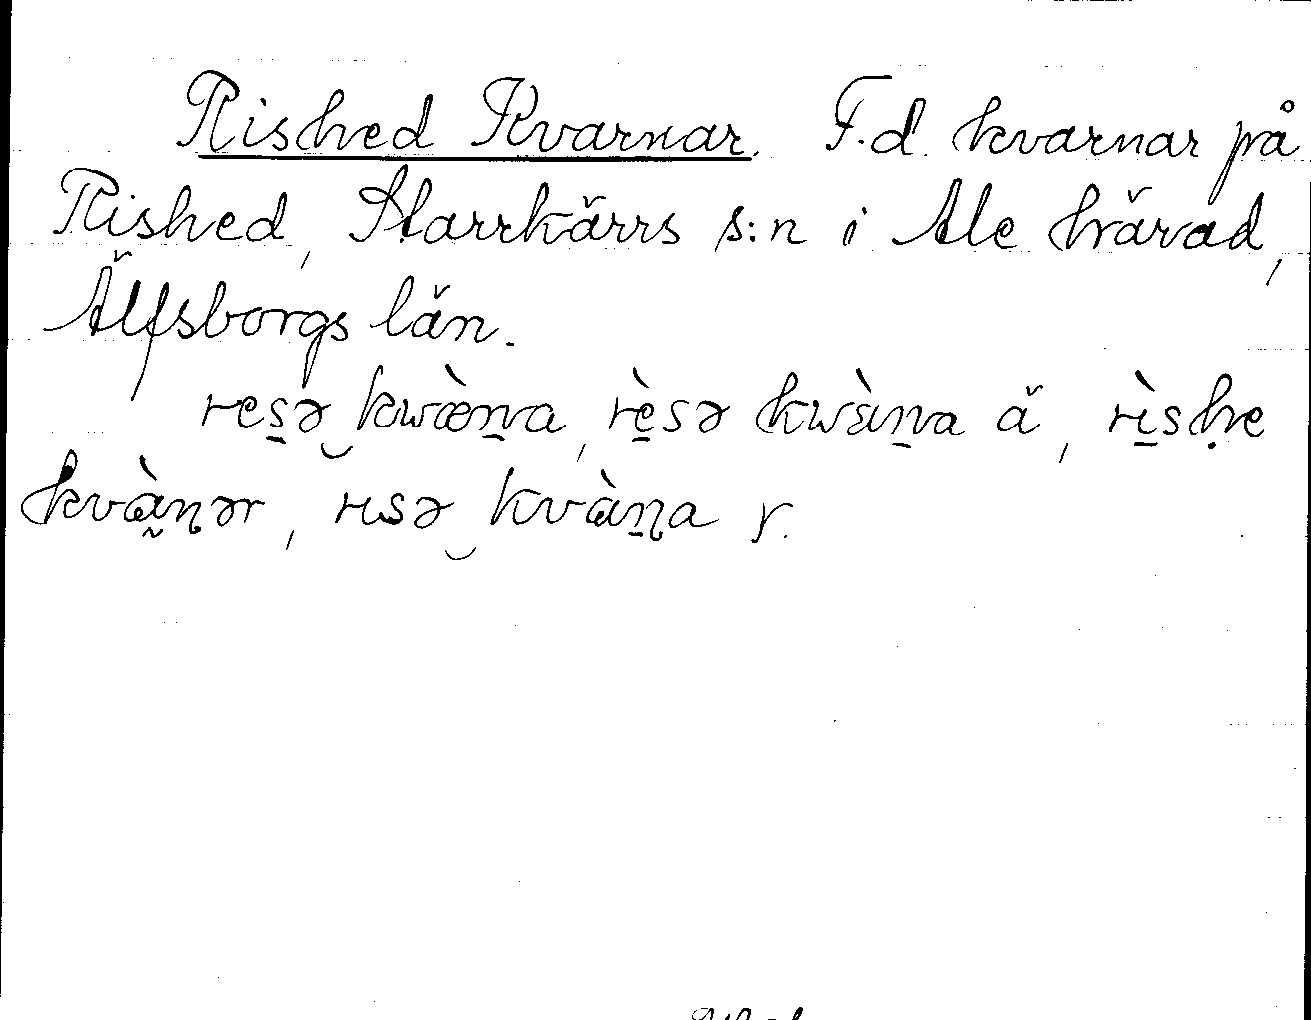 Rished Kvarnar. F.d. kvarnar på
Rished, Starrkärrs s:n i Ale härad,
Älfsborgs län.
res̱ə‿kwæ̀ṉa, rè̱sə kwàṉa ä, rì̱sḥe
kvà̰ɳər, rɩsə‿kvà̱ɳa r.